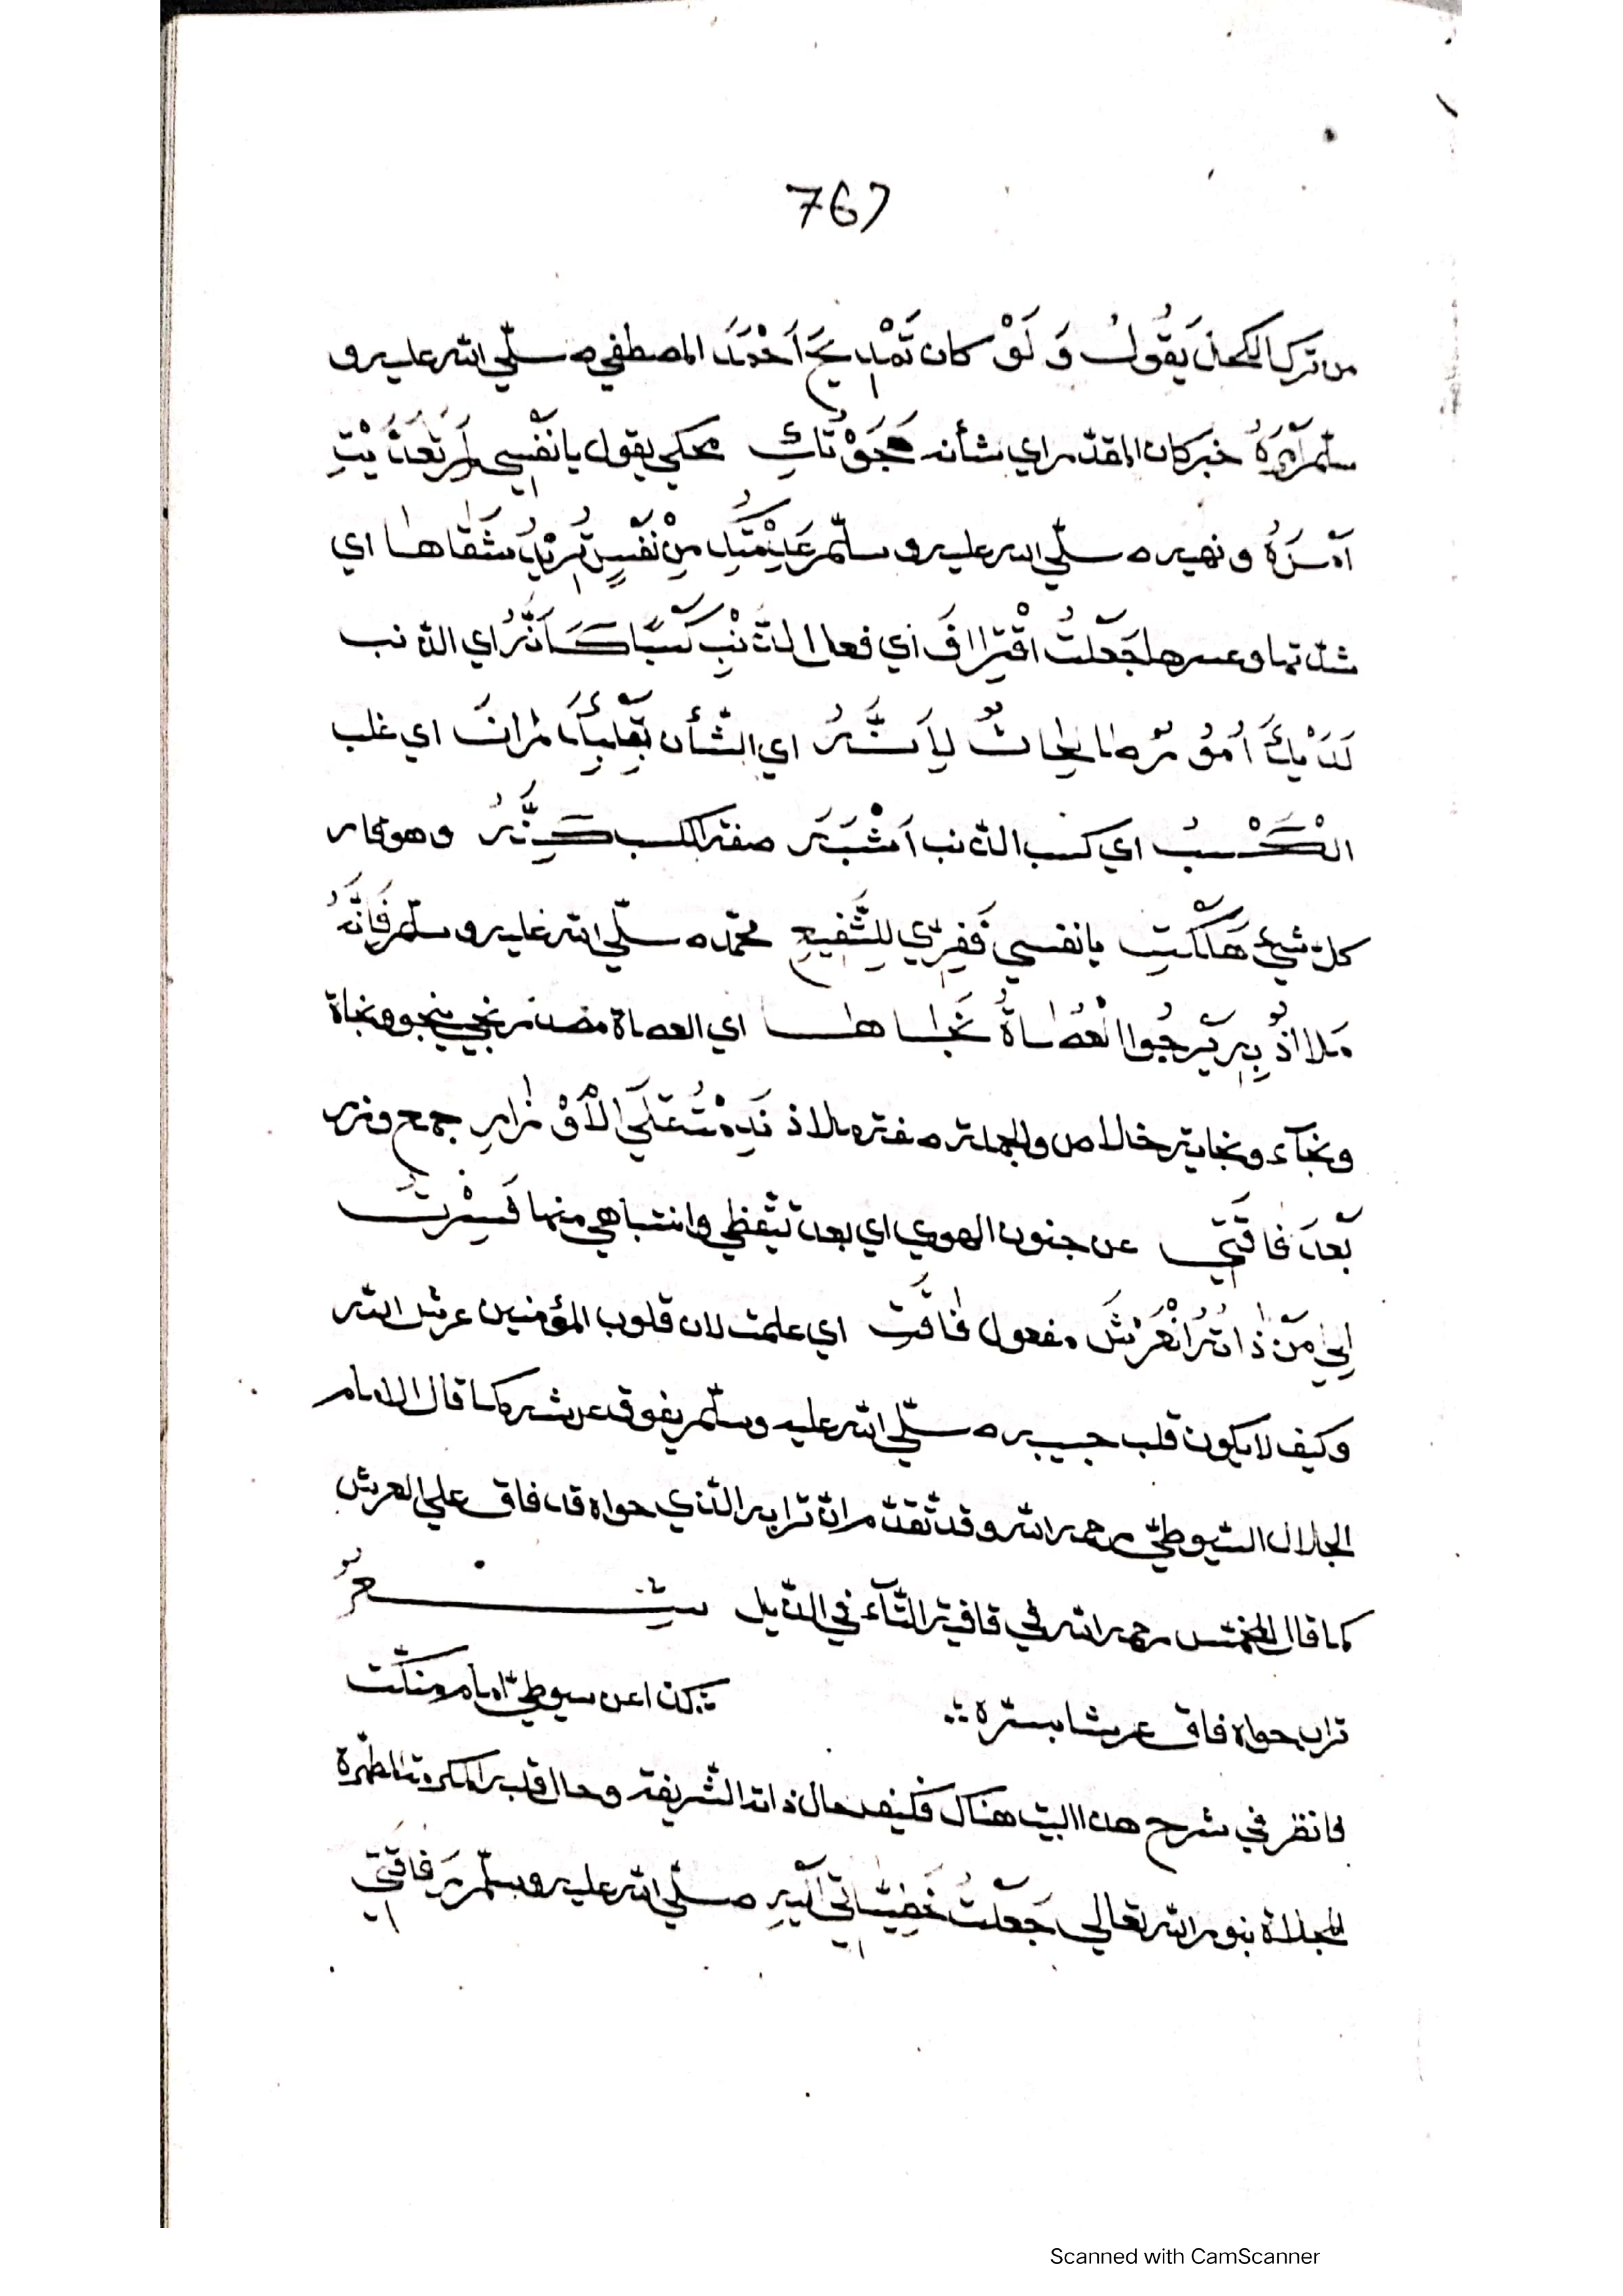 767
من ترك الكحل يَقُولُ وَلَوْ كان تَمْدِيحَ اَحْمَدَ المصطفي صلّي الله عليه و
سلّم خبر كان المقدّم اي شأنه محكي يقول يا نَفْسِي لم تَعَدَّيْتِ
اَمْرَهُ و نهيه صلّي الله عليه و سلّم عَدِمْتُكِ مِنْ نَفْسٍ تُرِيْدُ شَقَاها اي
شدّتها و عسرها جَعَلْتُ اقْتِرَافَ اي فعال الذَّنْبِ كَسْبًا كَاَنَّهُ اي الذّنب
لَدَيْكَ اُمُوْرٌ صالِحاتٌ لِاَنَّهُ اي الشّأن بِقَلْبِكَ رَانَ اي غلب
الْكَسْبُ اي كسب الذّنب اَشْبَهَ صفة الكسب و هو
كلّ شيئ هَلَكْتِ يا نفسي فَفِرِّي لِلشَّفِيعِ محمّد صلّي الله عليه و سلّم فَاِنَّهُ
مَلَاذٌ بِهِ يَرْجُوا الْعُصَاةُ نَجَاها اي العصاة مصدر نجي ينجو و نجاة
و نجآء و نجاية خالاص والجملة صفة ملاذ نَدِمْتُ عَلَي الْاَوْزَارِ جمع وزر
بَعْدَ فَاقَتِي عن جنون الهوي اي بعد تيقّظي وانتباهي منها فَسِرْتُ
اِلي مَنْ ذَاتُهُ الْعَرْشَ مفعول فَاقَتِ اي علمت لان قلوب المؤمنين عرش الله
وكيف لا يكون قلب حبيبه صلّي الله عليه وسلّم يفوق عرشه كما قال الامام
الجلال السّيوطيّ رحمه الله و قد تقدّم انّ ترابه الّذي حواه قد فاق علي العرش
كما قال المخمّس رحمه الله في قافية التّآء في الذّيل شِعْرٌ
تراب حواه فاق عرشا بسرّه ؞ كذا عن سيوطيّ امام منكّت
فانظر في شرح هذا البيت هناك فكيف حال ذاته الشّريفة و حال قلبه المكرمة المطهّرة
المجلاة بنور الله تعالي جَعَلْتُ خَطِيئَاتِي اَلَيْهِ صلّي الله عليه و سلّم فَاقَتِي
Scanned with CamScanner